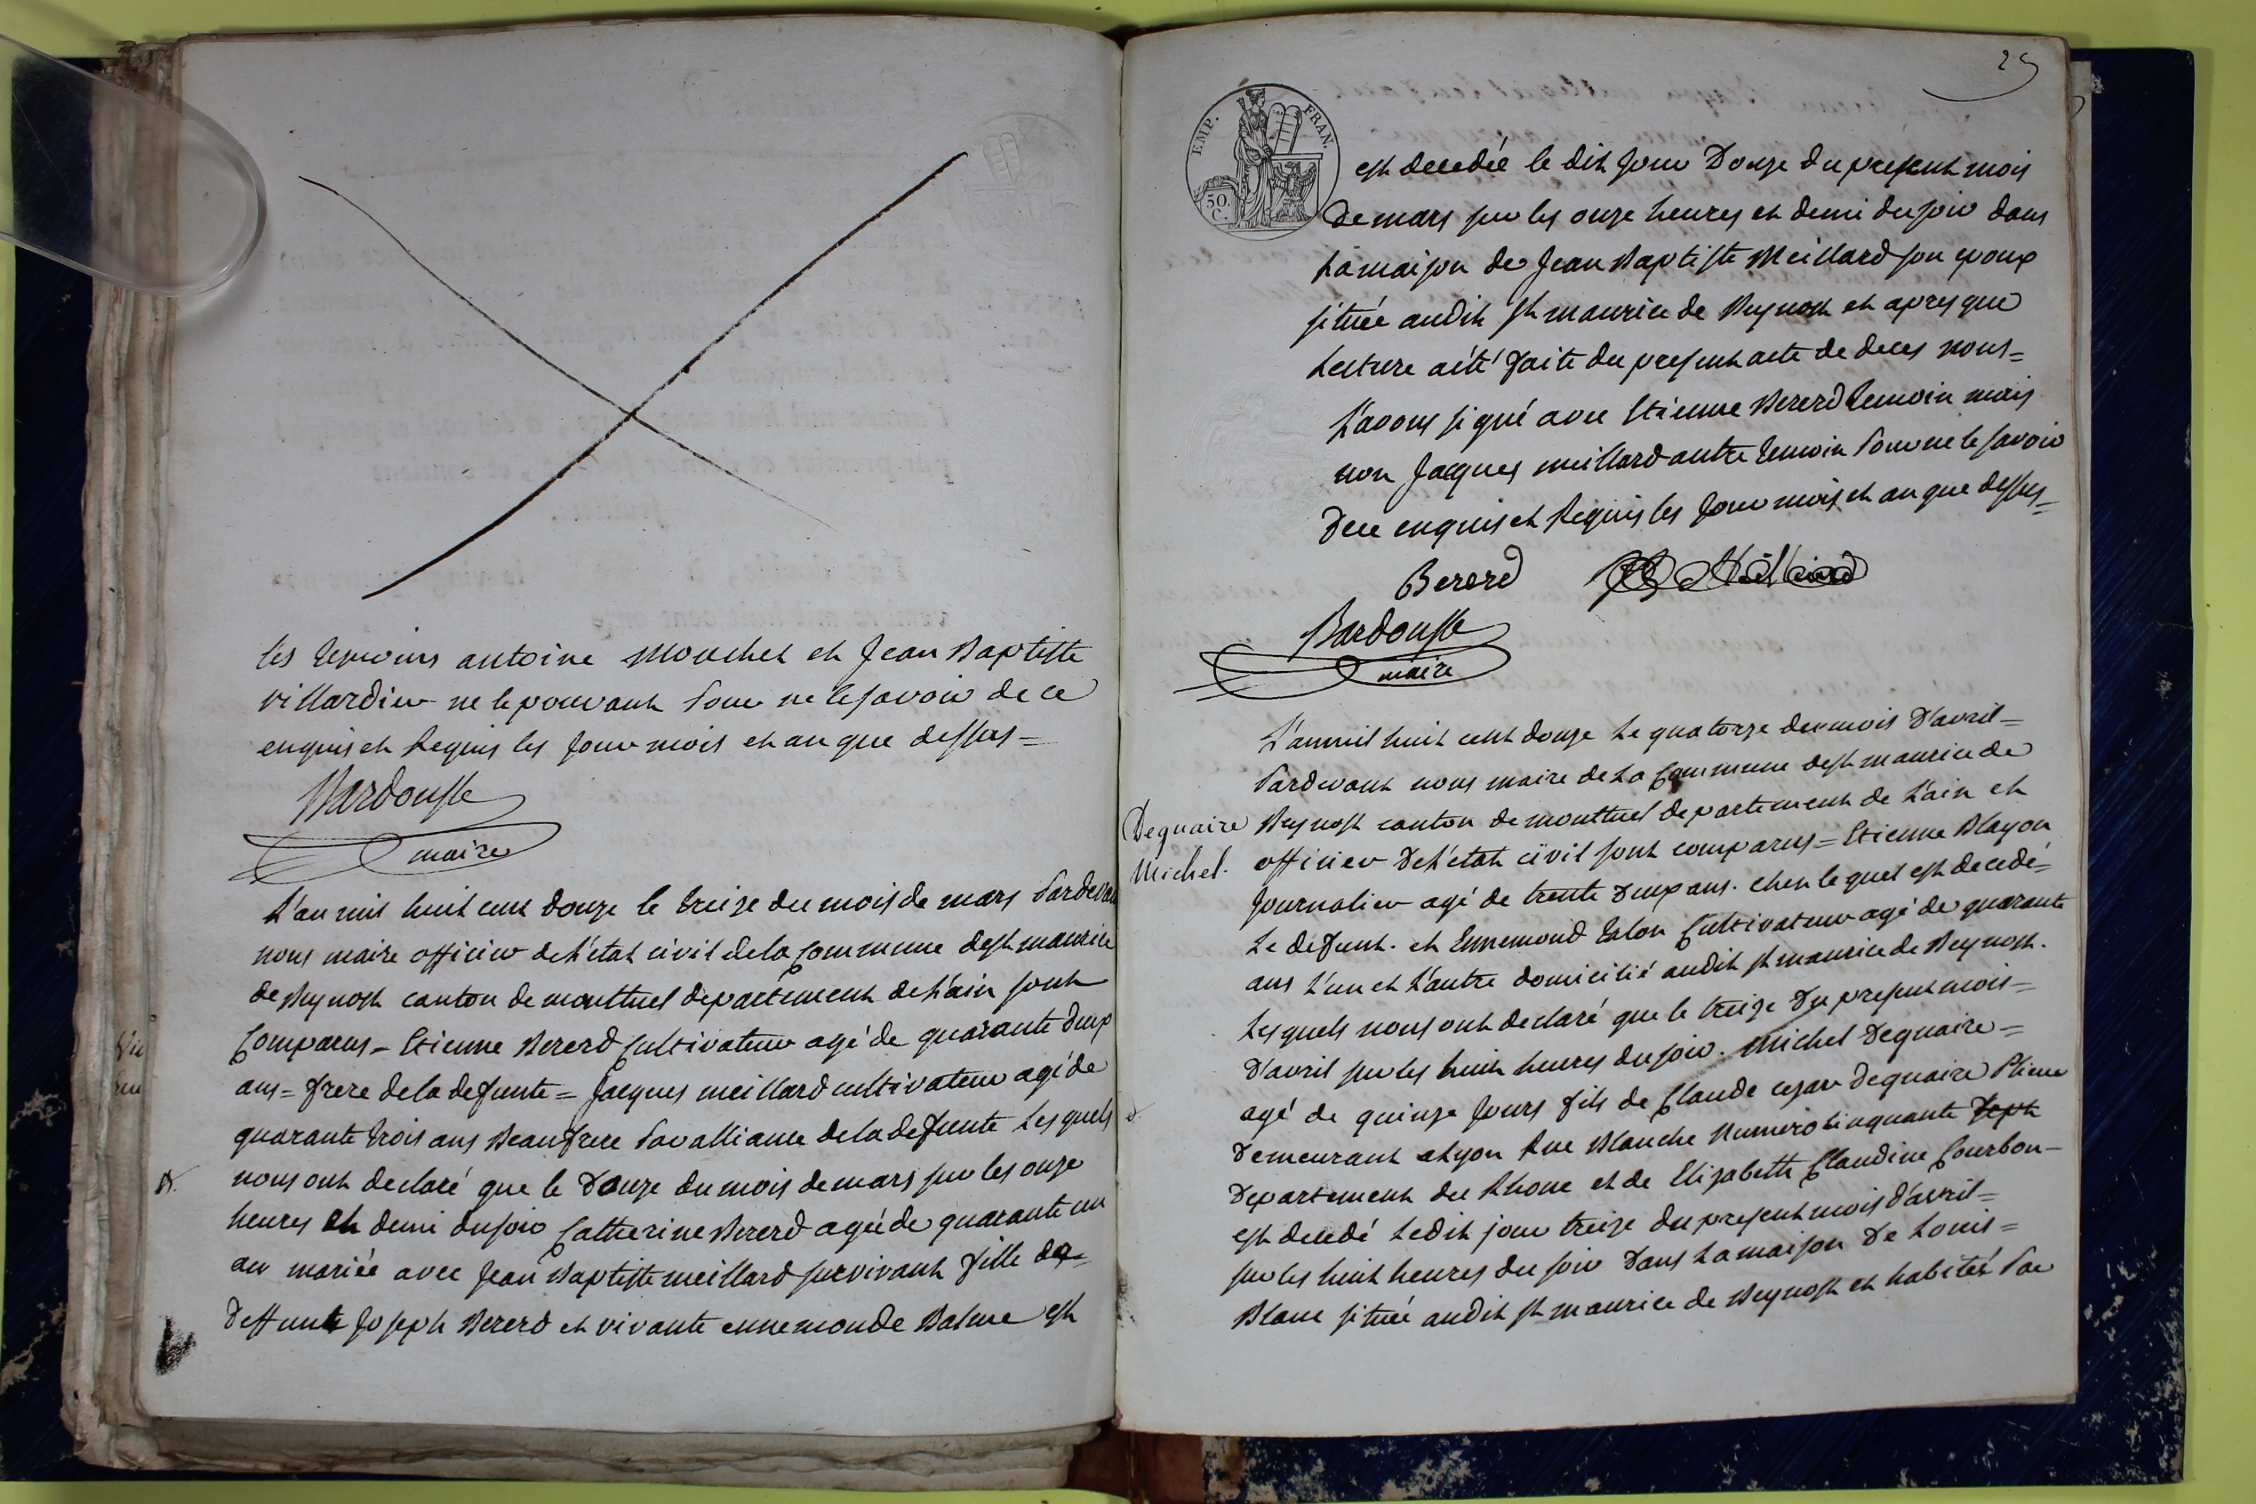 les temoins antoine Mouchet et Jean Baptiste
villardier ne le pouvant pour ne le savoir de ce
enquis et requis les jour mois et an que dessus =
Bardousse
maire
L'an mil huit cent douze le treize du mois de mars Pardevant
nous maire officier de L'état civil de la Commune de st maurice
de Beynost canton de montluel departement de L'ain sont
Comparus = Etienne Bererd Cultivateur agé de quarante deux
ans = frere de la defunte = Jacques meillard cultivateur agé de
quarante trois ans Beaufrere Par alliance de la defunte Lesquels
nous ont declaré que le Douze du mois de mars sur les onze
heures et demi du soir Catherine Bererd agée de quarante un
an mariée avec Jean Baptiste meillard survivant fille de
deffunt Joseph Bererd et vivante ennemonde Balme est
25
EMP. FRAN.
50. C.
est decedée le dit jour Douze du present mois
De mars sur les onze heures et demi du soir dans
La maison de Jean Baptiste Meillard son epoux
située audit st maurice de Beynost et apres que
Lecture a été faite du present acte de deces nous =
L'avons signé avec Etienne Bererd temoin mais
non Jacques meillard autre temoin Pour ne le savoir
De ce enquis et Requis les jour mois et an que dessus =
Bererd
Bardousse
maire
L'an mil huit cent douze Le quatorze du mois D'avril =
Pardevant nous maire de La Commune de st maurice de
Dequaire
Michel.
Beynost canton de montluel departement de L'ain et
officier De L'état civil sont comparus = Etienne Blayon
Journalier agé de trente deux ans. chez lequel est decedé =
Le defunt. et Ennemond Cultivateur agé de quarante
ans L'un et L'autre domicilié audit st maurice de Beynost.
Lesquels nous ont declaré que le treize Du present mois =
D'avril sur les huit heures du soir. Michel Dequaire =
agé de quinze Jours fils de Claude cezar Dequaire
Demeurant a Lyon Rue Blanche Numero cinquante sept
Departement du Rhone et de Elizabeth Claudine Courbon =
est decedé Ledit jour treize du present mois d'avril =
sur les huit heures du soir Dans La maison De Louis =
Blanc située audit st maurice de Beynost et habitée Par